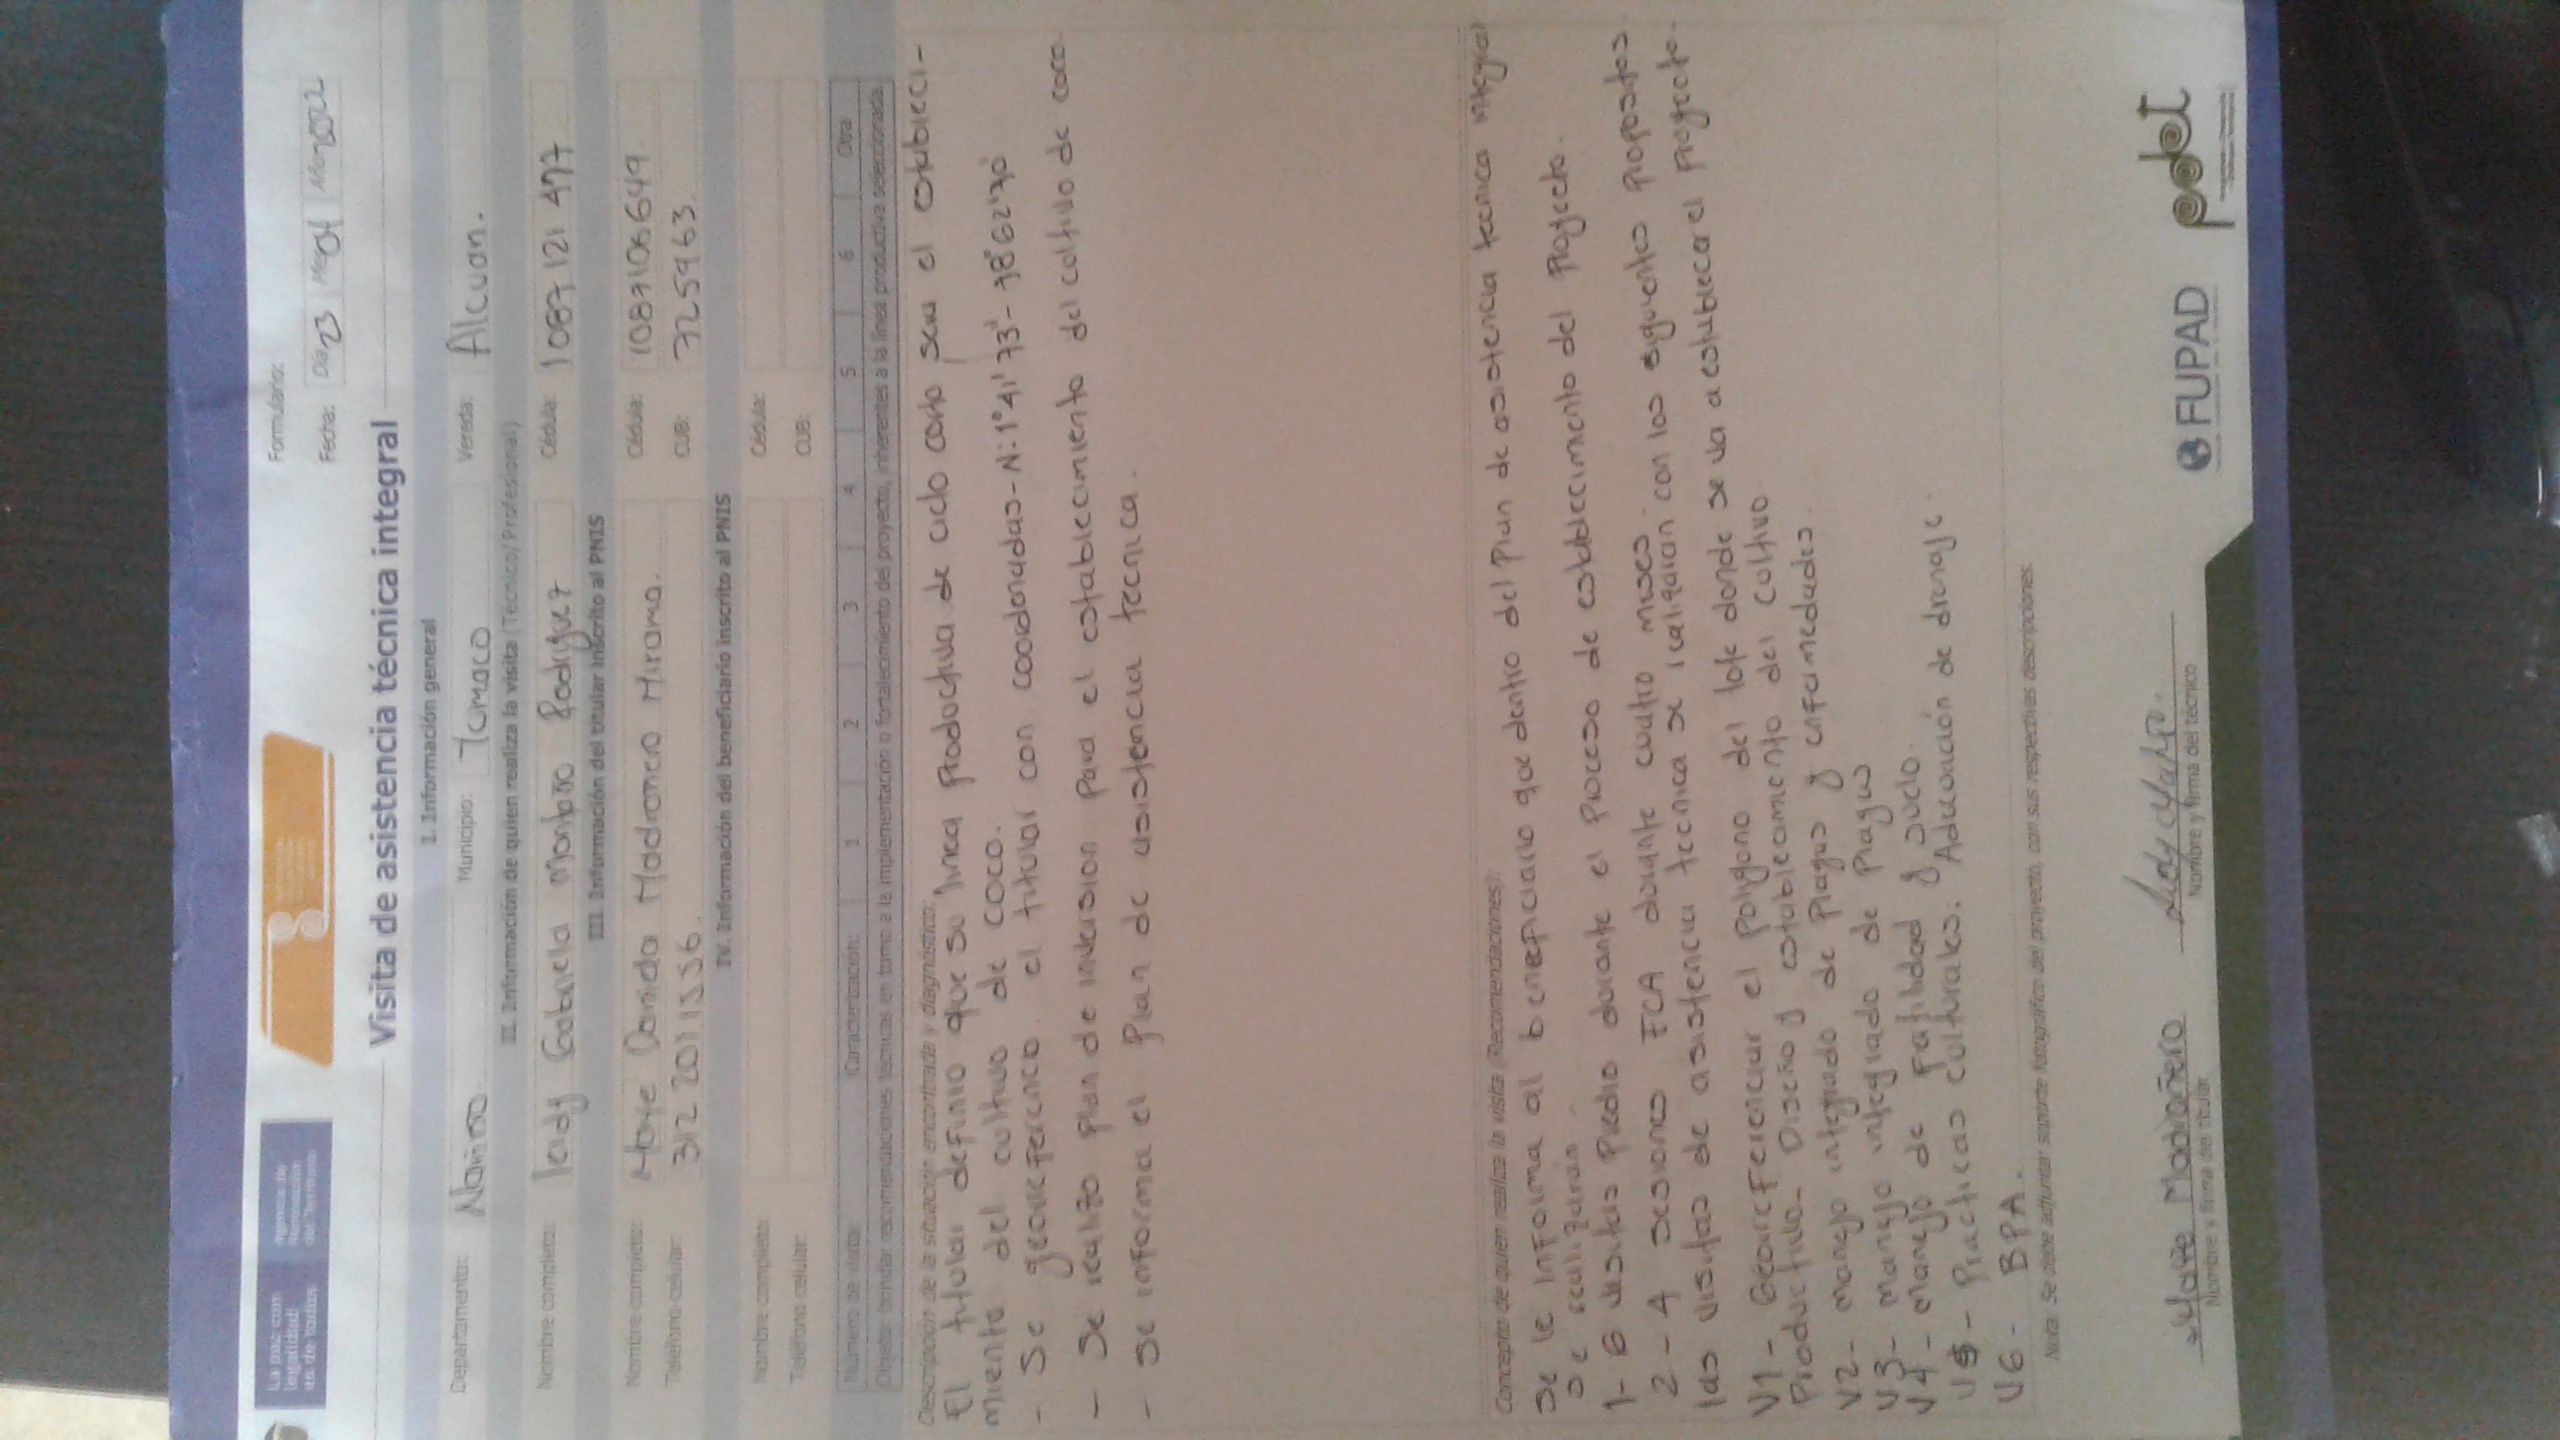 La paz con
legalidad
es de todos
Agencia de
Renovación
del Territorio
Formulario:
Fecha: Día 23 Mes 04 Año 2022
Visita de asistencia técnica integral
I. Información general
Departamento: Nariño Municipio: Tumaco Vereda: Alcuan.
II. Información de quien realiza la visita (Técnico/Profesional)
Nombre completo: lady Gabriela Montaño Rodriguez Cédula: 1087121 477
III. Información del titular inscrito al PNIS
Nombre completo: Maye Daniela Madronero Mirama. Cédula: 1087106649.
Teléfono celular: 312 2011556. CUB: 7259963
IV. Información del beneficiario inscrito al PNIS
Nombre completo: Cédula:
Teléfono celular: CUB:
Número de visita: Caracterización: 1 2 3 4 5 6 Otra
Objeto: brindar recomendaciones técnicas en torno a la implementación o fortalecimiento del proyecto, inherentes a la línea productiva seleccionada.
Descripción de la situación encontrada y diagnóstico:
El titular definio que su linea productiva de ciclo corto sera el estableci-
miento del cultivo de coco.
- Se georeferencio. el titular con coordenadas - N: 1° 41' 73" - 78° 62' 70"
- Se realizo plan de inversion para el establecimiento del cultivo de coco.
- se informa el plan de asistencia tecnica.
Concepto de quien realiza la visita (Recomendaciones):
Se le informa al beneficiario que dentro del plan de asistencia tecnica integral
se realizaran.
1- 6 visitas predio durante el proceso de establecimento del proyecto.
2- 4 sesiones ECA durante cuatro meses.
las visitas de asistencia tecnica se realizaran con los siguientes propositos.
V1- Georeferenciar el poligono del lote donde se va a establecer el proyecto.
productivo. Diseño y establecimiento del cultivo.
V2- manejo integrado de plagas y enfermedades.
V3- manejo integrado de plagas
V4- manejo de Fertilidad y suelo.
V5- Practicas culturales. Adecuación de drenaje.
V6- BPA.
Nota: Se debe adjuntar soporte fotográfico del proyecto, con sus respectivas descripciones.
Maye Madroñero
Nombre y firma del titular
Nombre y firma del técnico
FUPAD
pdet